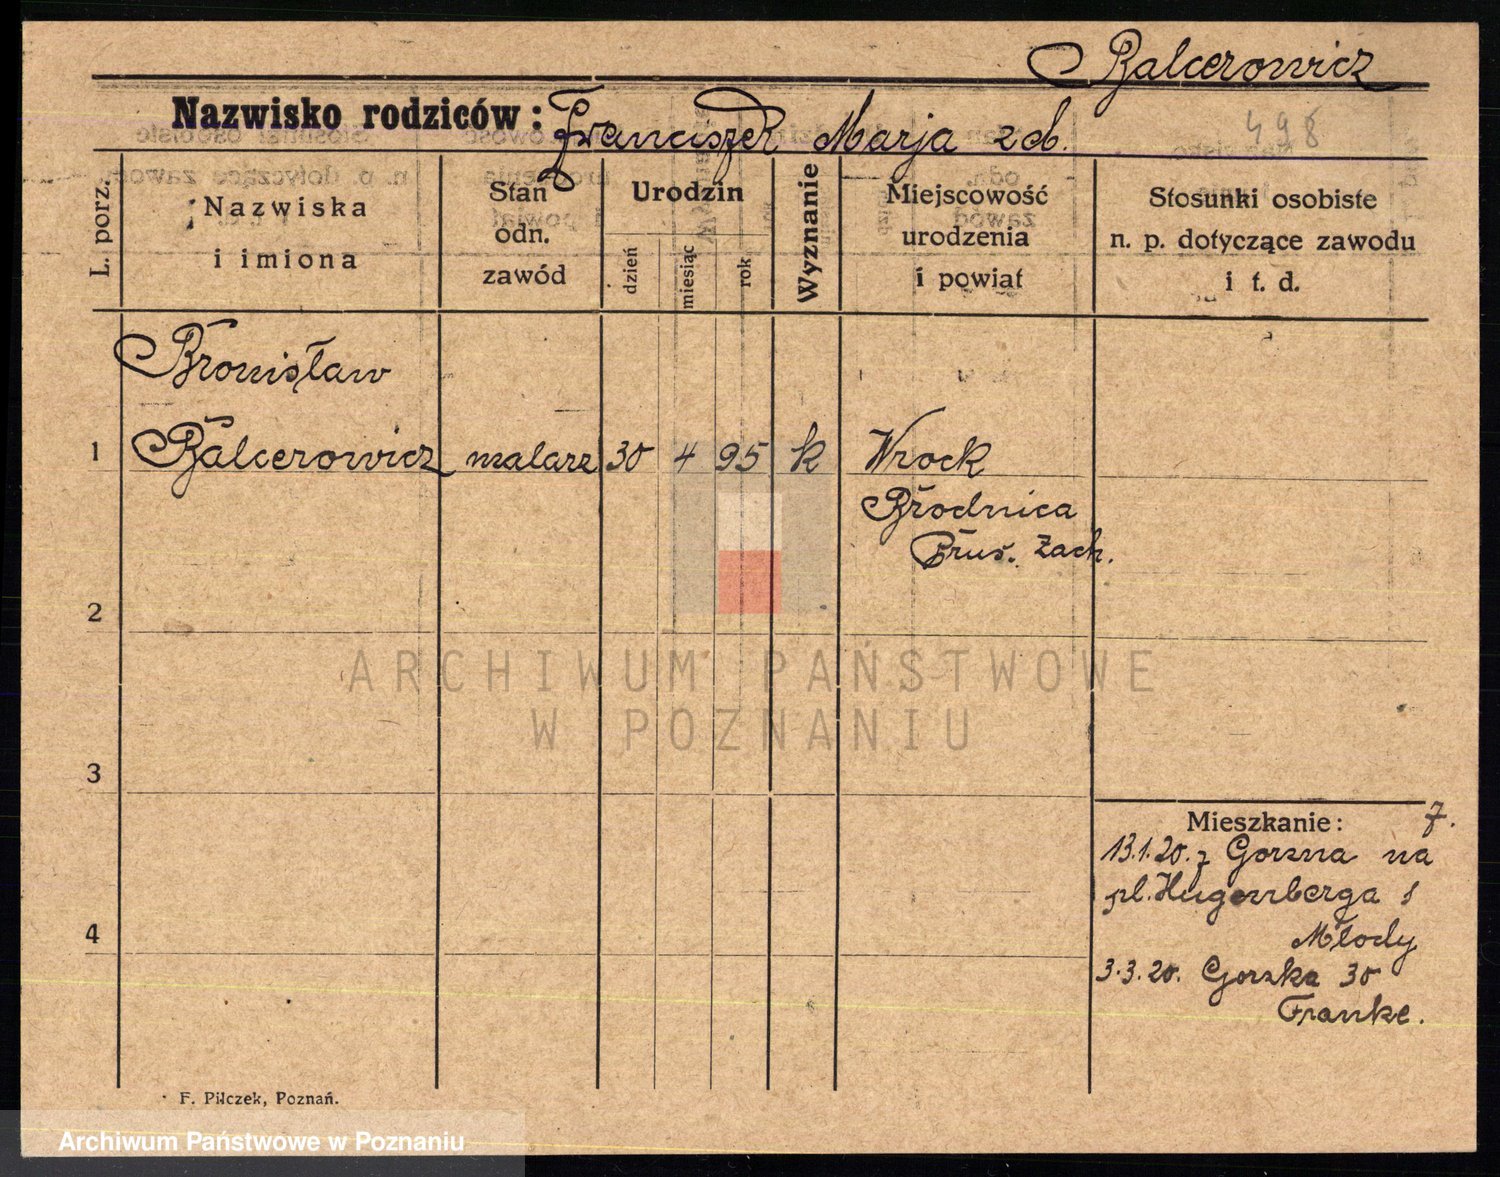 Balcerowicz
Nazwisko rodziców: Franciszek Marja z d.
498
L. porz.
Nazwiska
i imiona
Stan
odn.
zawód
Urodzin
dzień
miesiąc
rok
Wyznanie
Miejscowość
urodzenia
i powiat
Stosunki osobiste
n. p. dotyczące zawodu
i t. d.
Bronisław
1 Balcerowicz malarz 30 4 95 k Wrock
Brodnica
Prus. Zach.
2
3
4
ARCHIWUM PAŃSTWOWE
W POZNANIU
Mieszkanie: 7.
13.1.20. z Gorzna na
pl. Hugenberga
Młody
3.3.20. Gorzka 30
Franke.
F. Pilczek, Poznań.
Archiwum Państwowe w Poznaniu